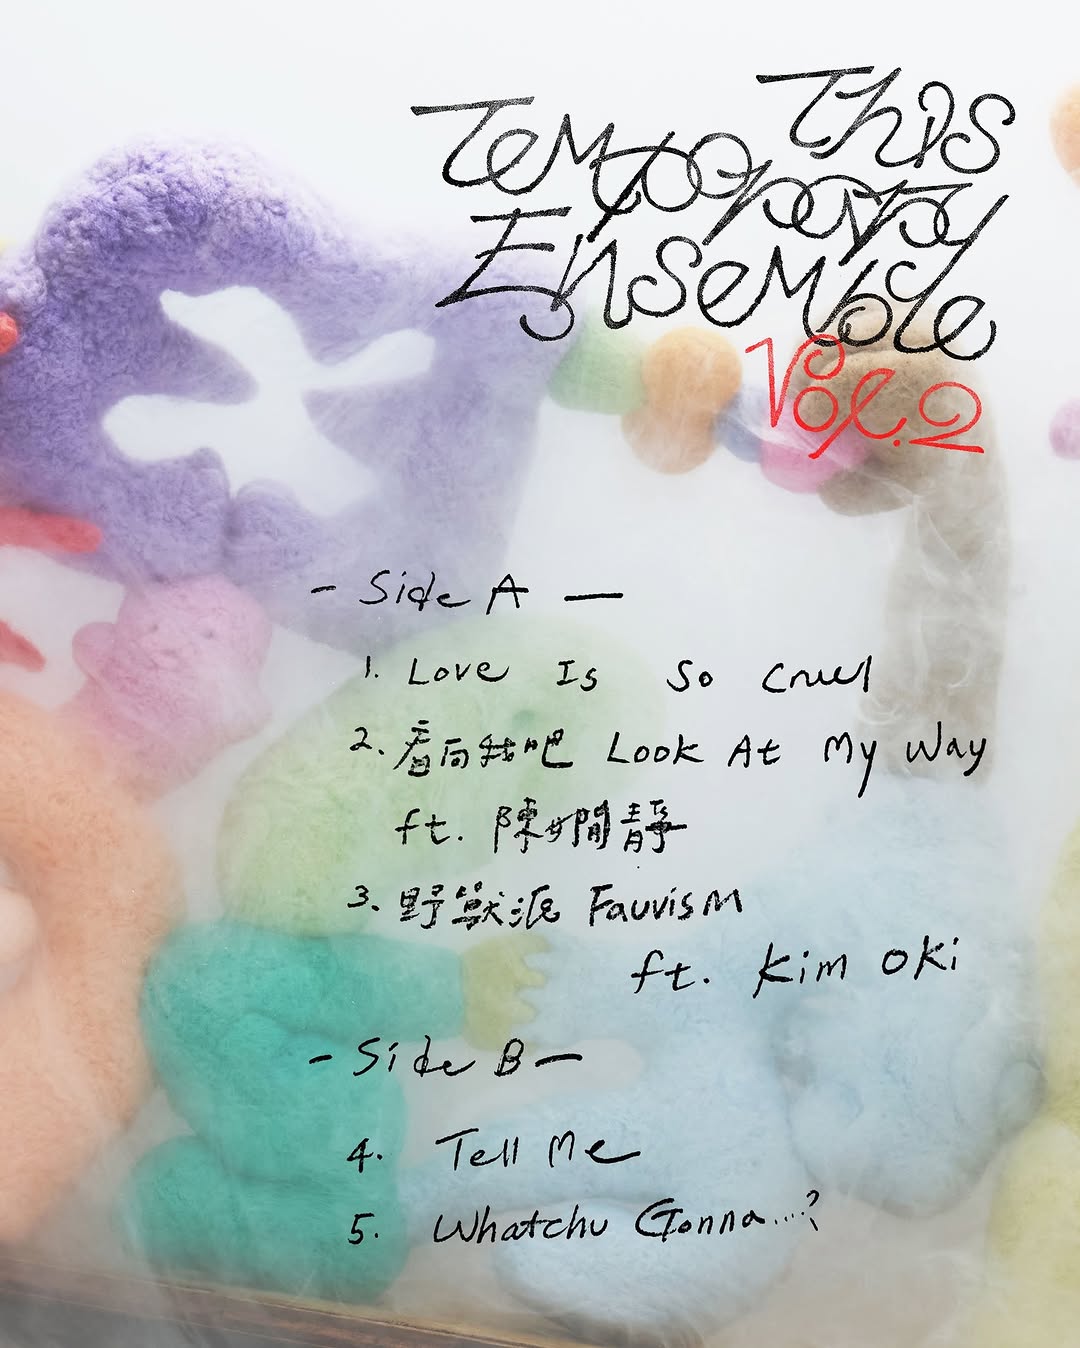 This
Temporary
Ensemble
Vol.2
- Side A —
1. Love Is So Cruel
2. 看向我吧 Look At My Way
ft. 陳嫺靜
3. 野獸派 Fauvism
ft. Kim Oki
- Side B —
4. Tell Me
5. Whatchu Gonna....?